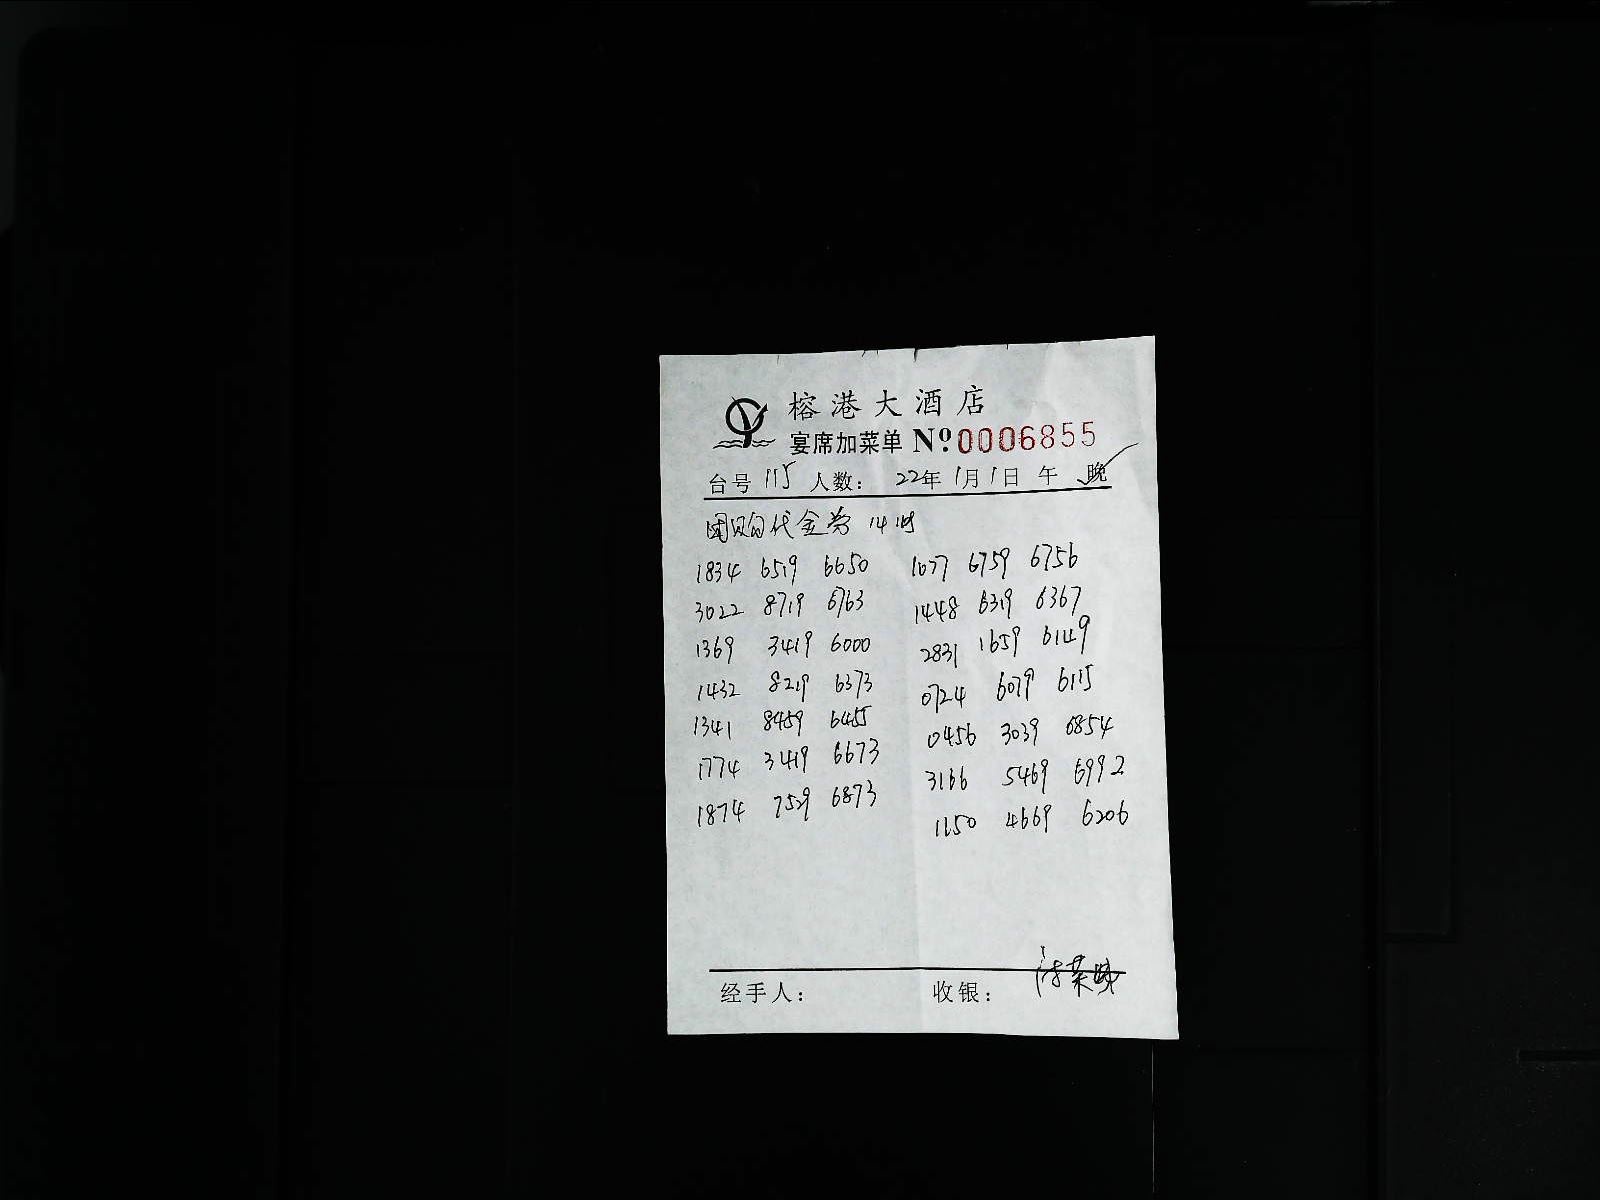 榕港大酒店
宴席加菜单 Nº 0006855
台号 115 人数： 22年 1月 1日 午 晚
团购代金券 14
1834 6519 6650 1077 6759 6756
3022 8719 6763 1448 6319 6367
1369 3419 6000 2831 1659 6149
1432 8219 6373 0724 6079 6115
1341 8459 6455 0456 3039 6854
1774 3419 6673 3166 5469 6992
1874 7529 6873 1150 4669 6206
经手人： 收银：